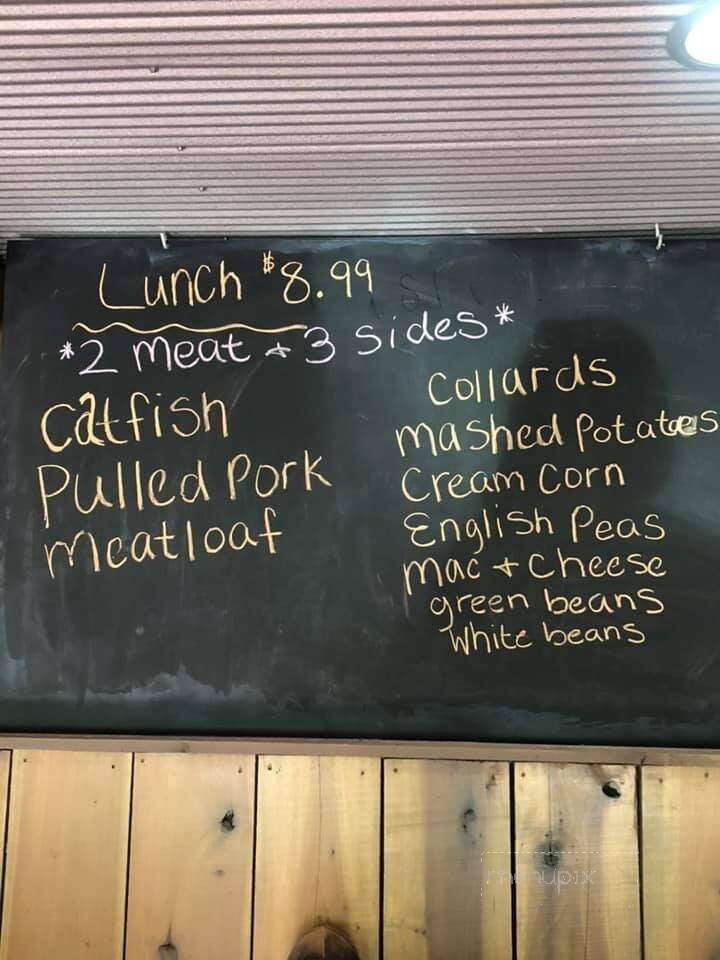 Lunch $8.99
*2 meat + 3 sides*
Catfish
Pulled Pork
Meatloaf
Collards
Mashed Potatoes
Cream Corn
English Peas
Mac + Cheese
green beans
White beans
menupix